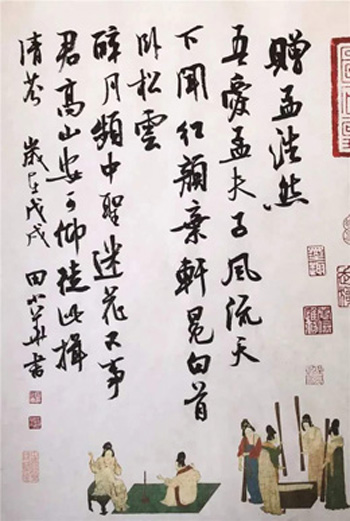 贈孟浩然
吾愛孟夫子風流天
下聞紅顏棄軒冕白首
臥松雲
醉月頻中聖迷花不事
君高山安可仰徒此揖
清芬 歲在戊戌 田小華書